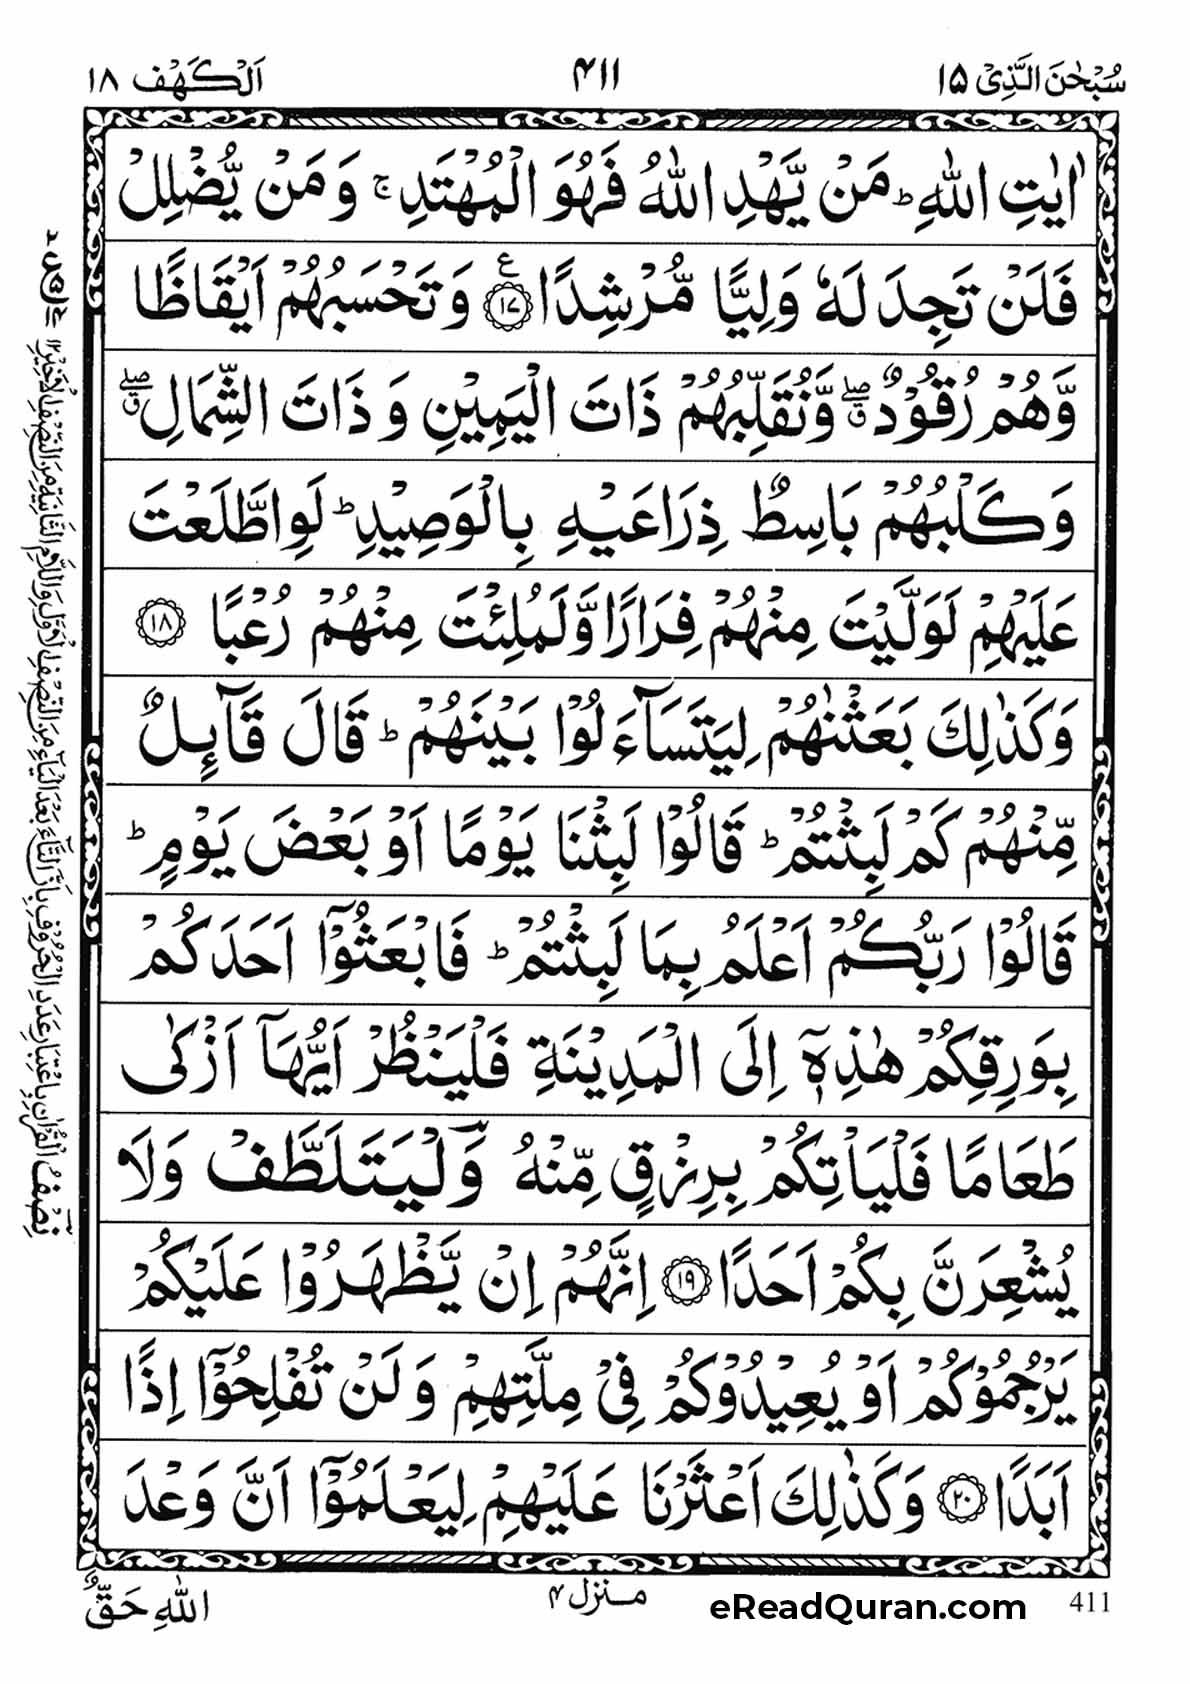 سُبْحٰنَ الَّذِیْۤ ۱۵
۴۱۱
اَلْكَهْف ۱۸
اٰیٰتِ اللّٰهِ ؕ مَنْ یَّهْدِ اللّٰهُ فَهُوَ الْمُهْتَدِ ۚ وَ مَنْ یُّضْلِلْ
فَلَنْ تَجِدَ لَهٗ وَلِیًّا مُّرْشِدًا ﴿۱۷﴾ ع وَ تَحْسَبُهُمْ اَیْقَاظًا
وَّ هُمْ رُقُوْدٌ ۖۗ وَّ نُقَلِّبُهُمْ ذَاتَ الْیَمِیْنِ وَ ذَاتَ الشِّمَالِ ۖۗ
وَ كَلْبُهُمْ بَاسِطٌ ذِرَاعَیْهِ بِالْوَصِیْدِ ؕ لَوِ اطَّلَعْتَ
عَلَیْهِمْ لَوَلَّیْتَ مِنْهُمْ فِرَارًا وَّ لَمُلِئْتَ مِنْهُمْ رُعْبًا ﴿۱۸﴾
وَ كَذٰلِكَ بَعَثْنٰهُمْ لِیَتَسَآءَلُوْا بَیْنَهُمْ ؕ قَالَ قَآىِٕلٌ
مِّنْهُمْ كَمْ لَبِثْتُمْ ؕ قَالُوْا لَبِثْنَا یَوْمًا اَوْ بَعْضَ یَوْمٍ ؕ
قَالُوْا رَبُّكُمْ اَعْلَمُ بِمَا لَبِثْتُمْ ؕ فَابْعَثُوْۤا اَحَدَكُمْ
بِوَرِقِكُمْ هٰذِهٖۤ اِلَى الْمَدِیْنَةِ فَلْیَنْظُرْ اَیُّهَاۤ اَزْكٰى
طَعَامًا فَلْیَاْتِكُمْ بِرِزْقٍ مِّنْهُ وَ لْیَتَلَطَّفْ وَ لَا
یُشْعِرَنَّ بِكُمْ اَحَدًا ﴿۱۹﴾ اِنَّهُمْ اِنْ یَّظْهَرُوْا عَلَیْكُمْ
یَرْجُمُوْكُمْ اَوْ یُعِیْدُوْكُمْ فِیْ مِلَّتِهِمْ وَ لَنْ تُفْلِحُوْۤا اِذًا
اَبَدًا ﴿۲۰﴾ وَ كَذٰلِكَ اَعْثَرْنَا عَلَیْهِمْ لِیَعْلَمُوْۤا اَنَّ وَعْدَ
نِصْفُ الْقُرْاٰنِ بِاعْتِبَارِ عَدَدِ الْحُرُوْفِ بِاَنَّ التَّآءَ بَعْدَ الْیَآءِ مِنَ النِّصْفِ الْاَوَّلِ وَاللَّامِ الثَّانِیَةِ مِنَ النِّصْفِ الْاَخِیْرِ ۱۲
411
eReadQuran.com
منزل ۴
اللّٰهِ حَقٌّ